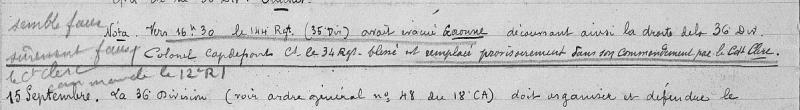 semble faux
Nota. Vers 16h30 le 144 Rgt. (35e Div) avait évacué Craonne découvrant ainsi la droite de la 36 Div.
sûrement faux
Colonel Capdepont Ct. le 34 Rgt. blessé et remplacé provisoirement dans son commandement par le Cdt Clerc.
le Ct Clerc
commande le 12e RI
15 Septembre. La 36 Division (voir ordre général no 48 du 18e CA) doit organiser et défendre le